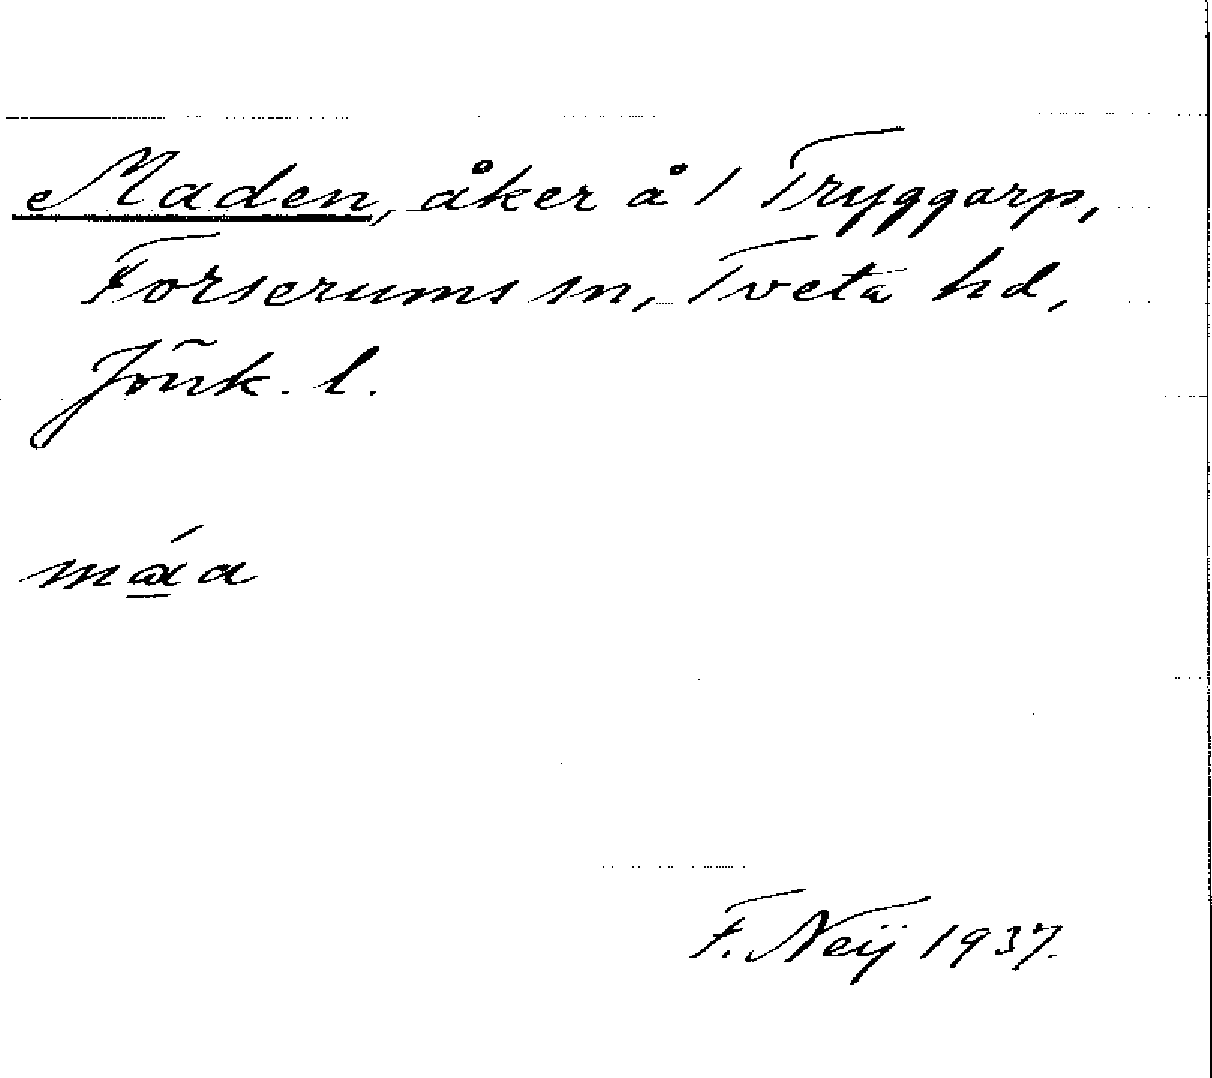 Maden, åker å 1 Tryggarp,
Forserums sn, Tveta hd,
Jönk. l.
F. Neij 1937.